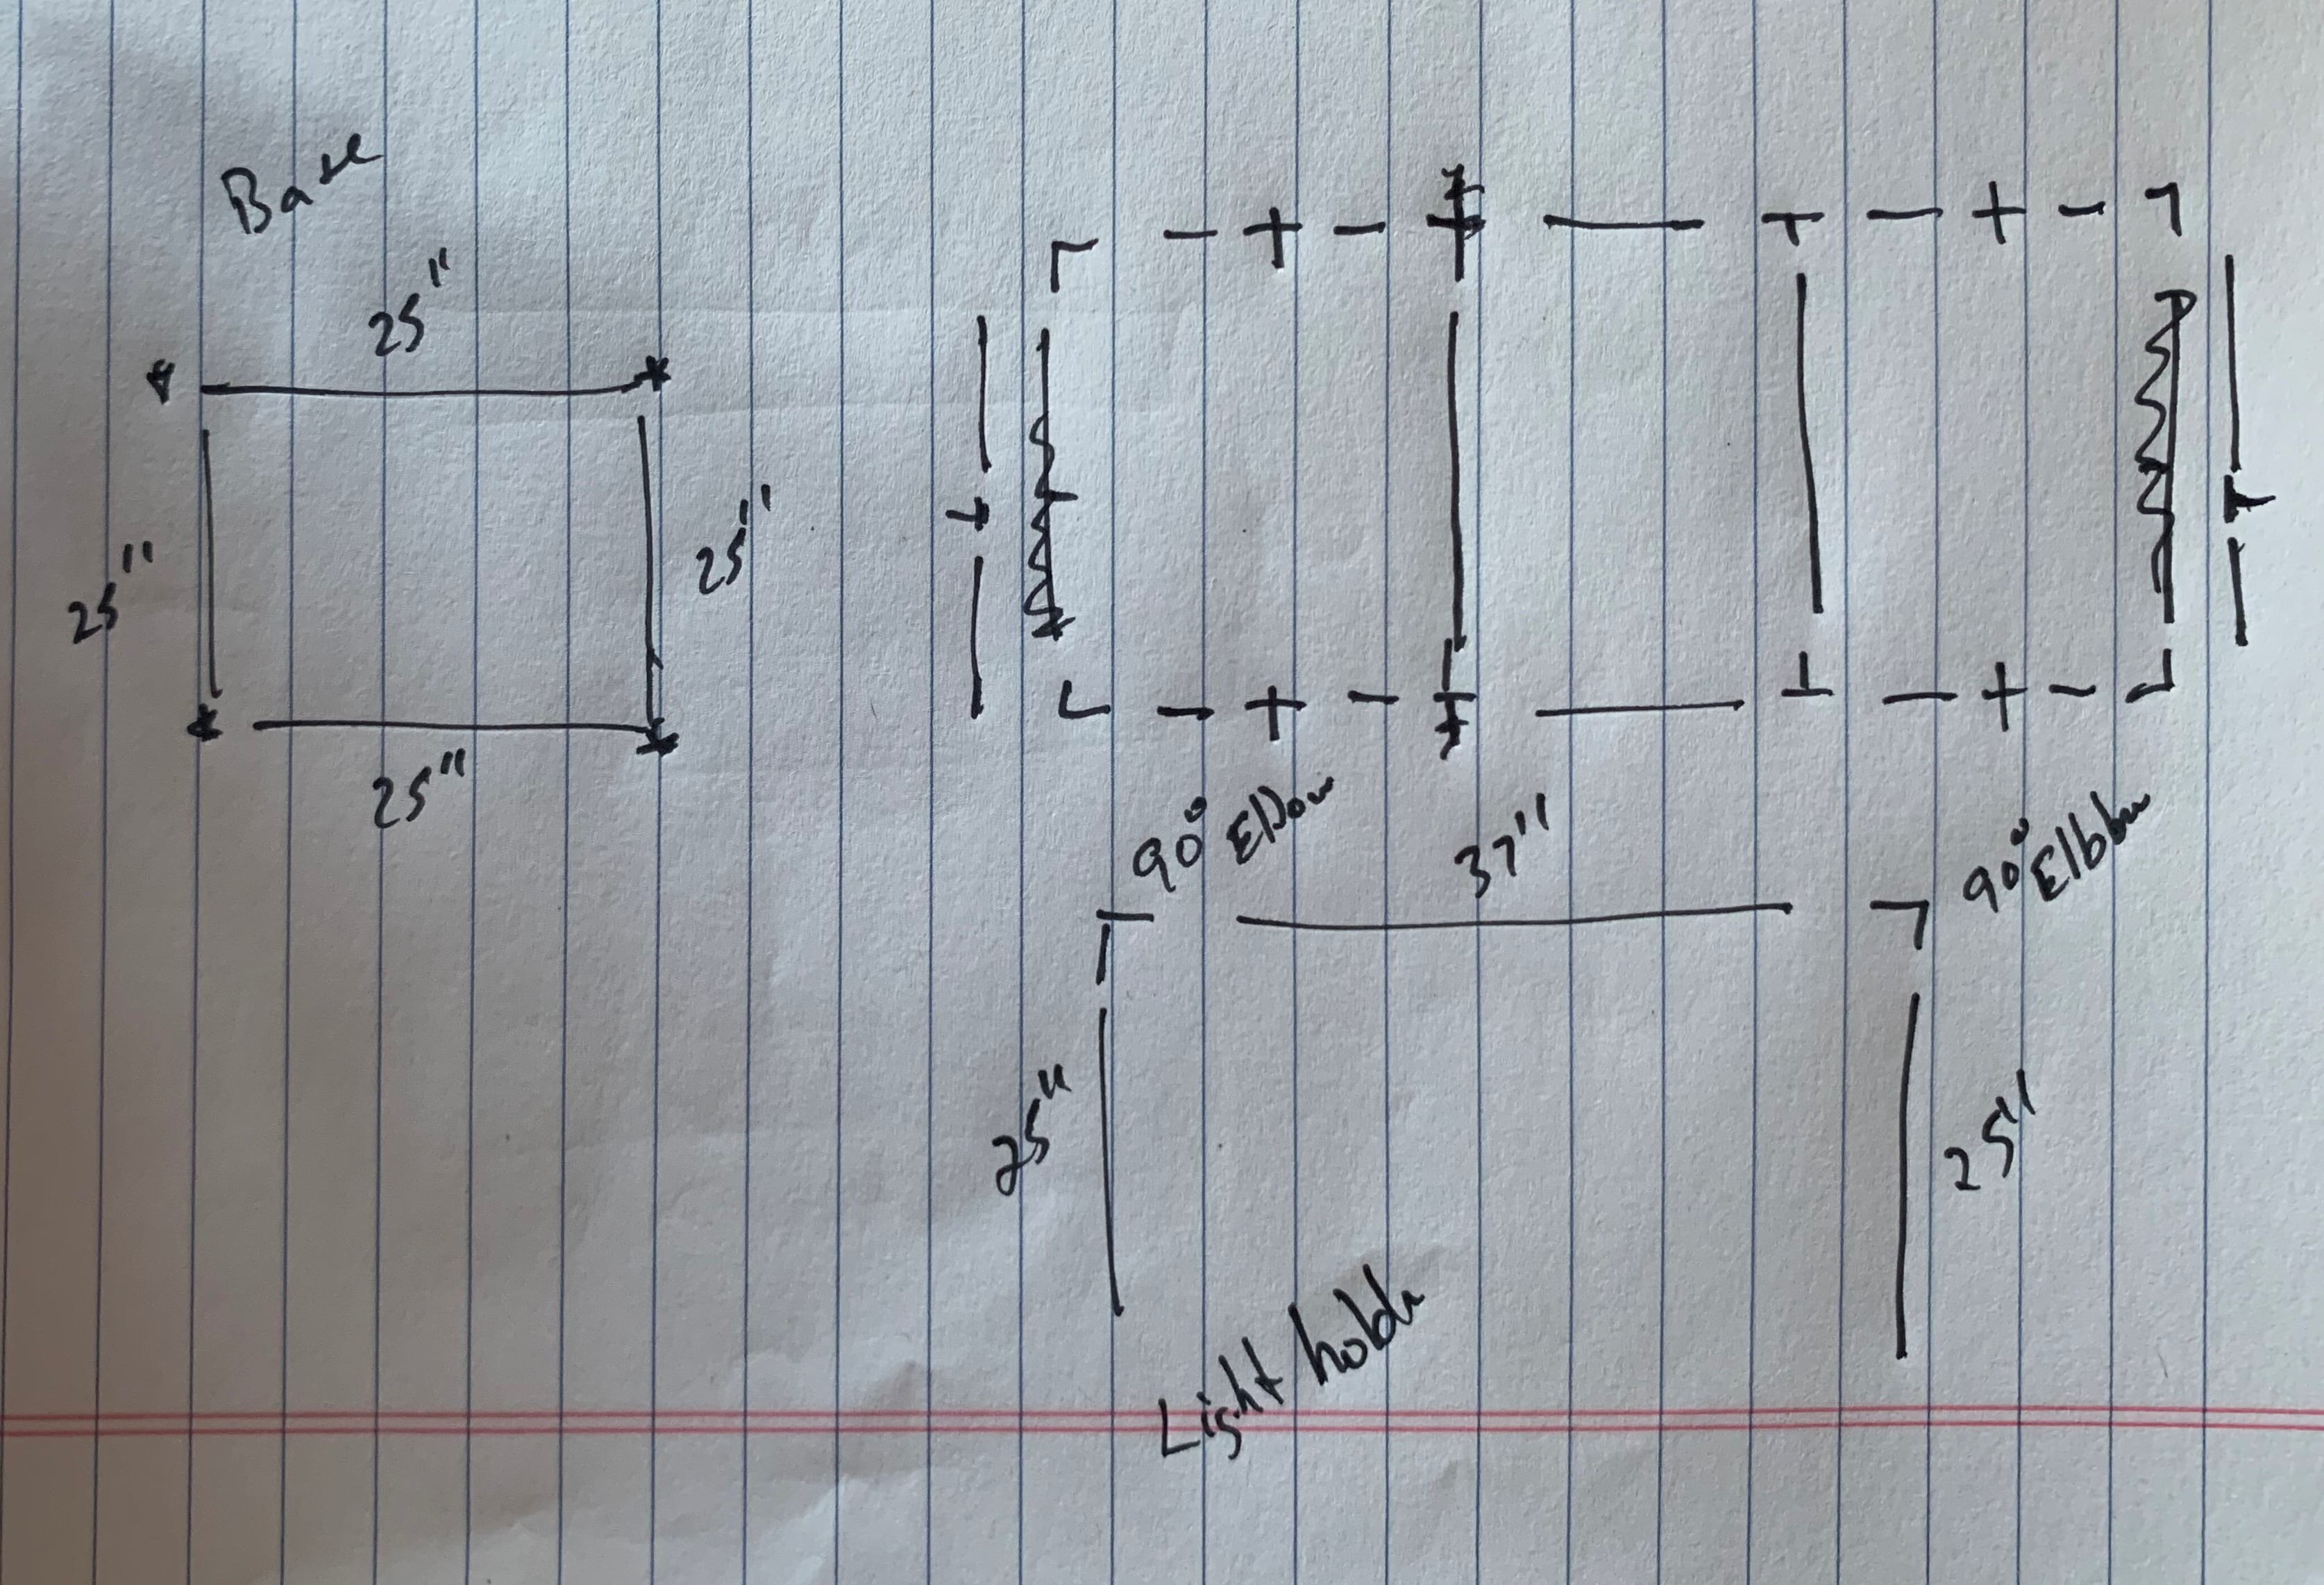 Base
25"
25"
25"
25"
90° Elbow
37"
90° Elbow
25"
25"
Light holdr